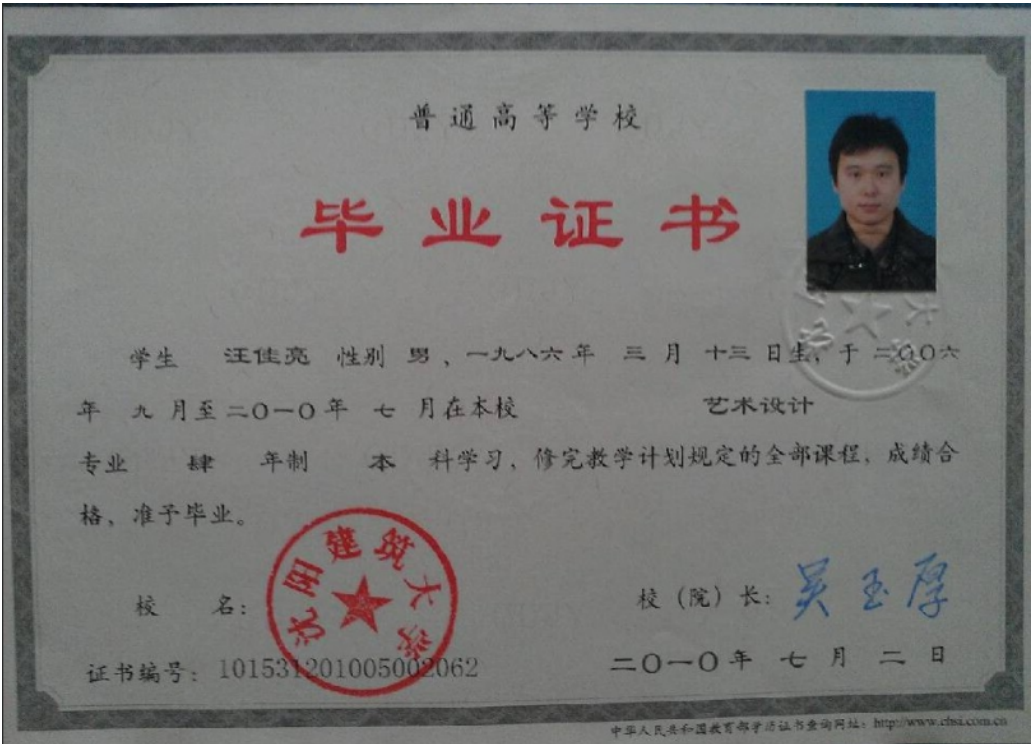 普通高等学校
毕业证书
学生 汪佳亮 性别 男，一九八六年 三 月 十三 日生，于 二〇〇六
年 九 月至 二〇一〇年 七 月在本校 艺术设计
专业 肆 年制 本 科学习，修完教学计划规定的全部课程，成绩合
格，准予毕业。
沈阳建筑大学
校 名：
校（院）长：吴玉厚
证书编号：101531201005002062
二〇一〇年 七 月 二 日
中华人民共和国教育部学历证书查询网址：http://www.chsi.com.cn